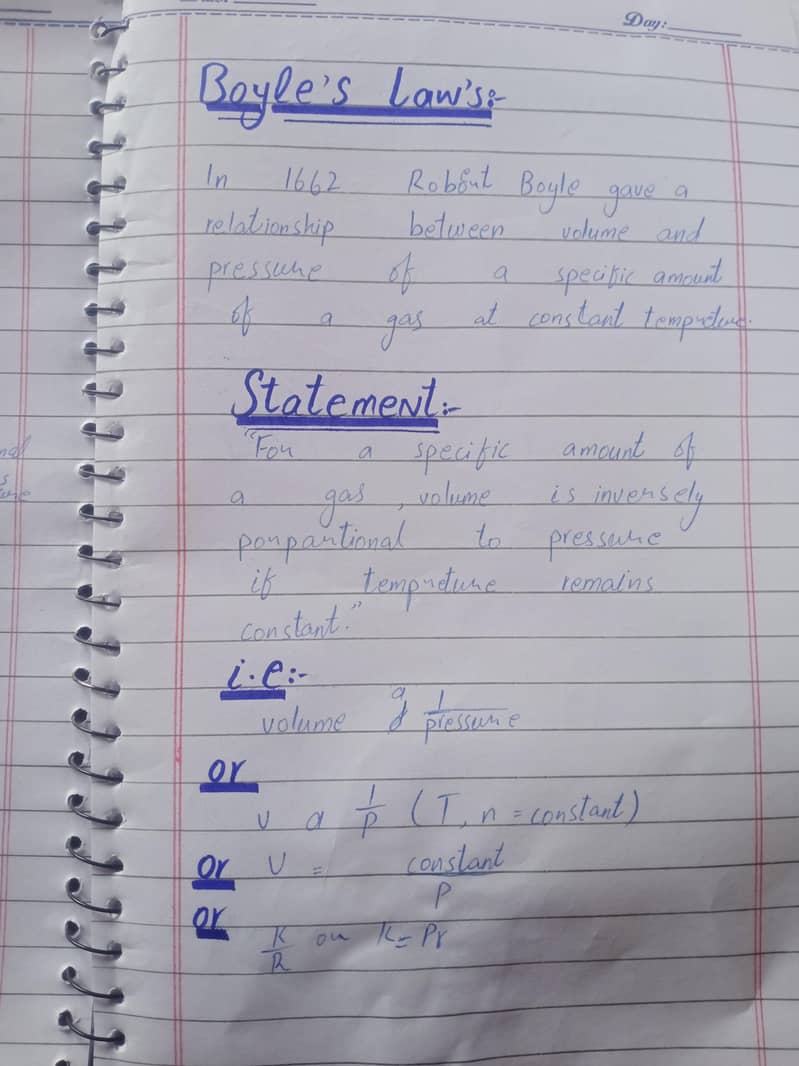 Day:
Boyle's Law's:-
In 1662 Robert Boyle gave a
relationship between volume and
pressure of a specific amount
of a gas at constant tempreture.
Statement:-
"For a specific amount of
a gas, volume is inversely
porpartional to pressure
if tempreture remains
constant."
i.e:-
volume α 1/pressure
or
v α 1/P (T, n = constant)
or V = constant/P
or
K/R or K = Pv